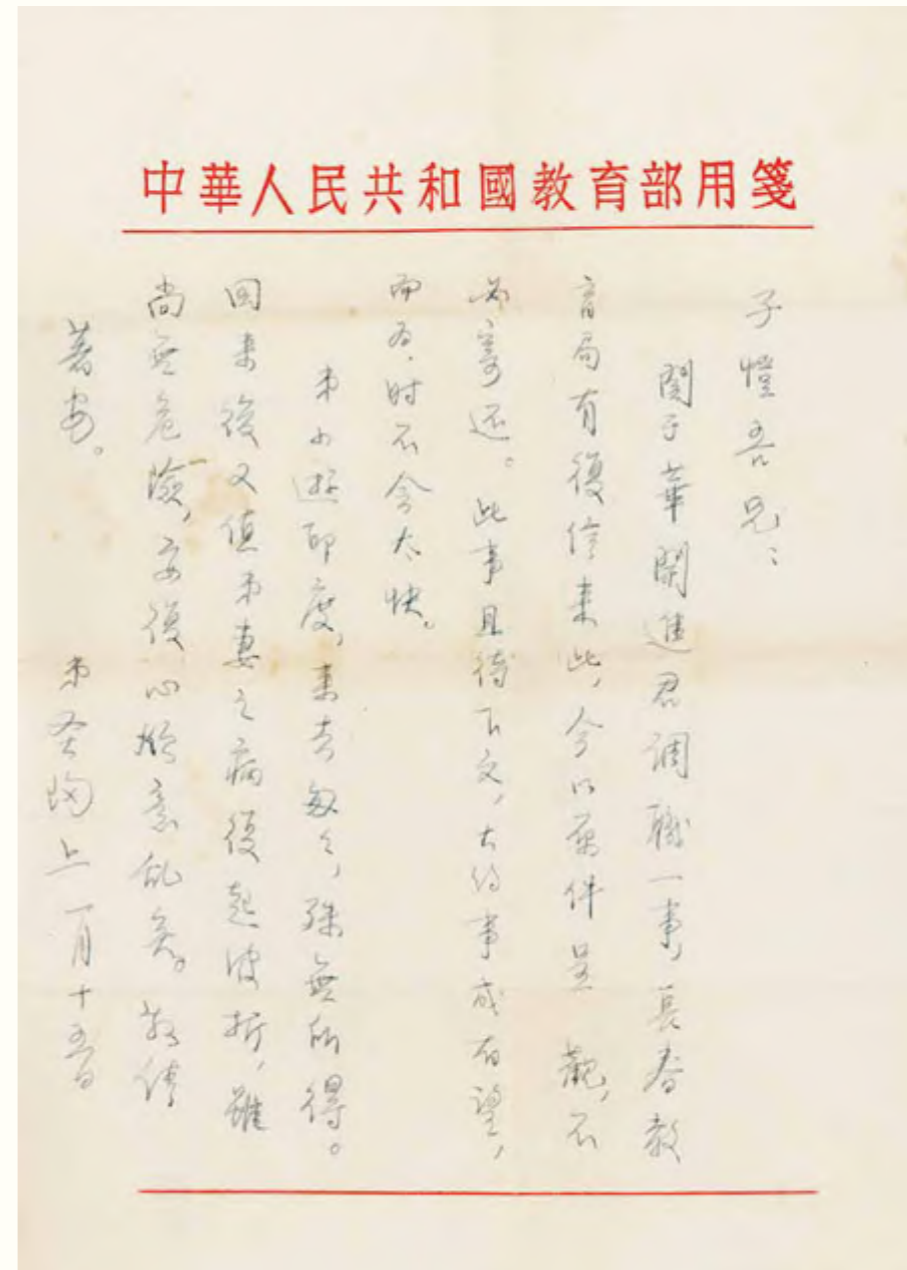 中華人民共和國教育部用箋
子愷吾兄：
關于華開進君調職一事，長春教
育局有復信來此，今以原件呈 觀，不
必寄还。此事且待下文，大約事成有望，
而為时不会太快。
弟出遊印度，來去匆匆，殊無所得。
回來後又值弟妻之病復起波折，雖
尚無危險，亦復心煩意亂矣。敬请
著安。
弟圣陶上 一月十五日